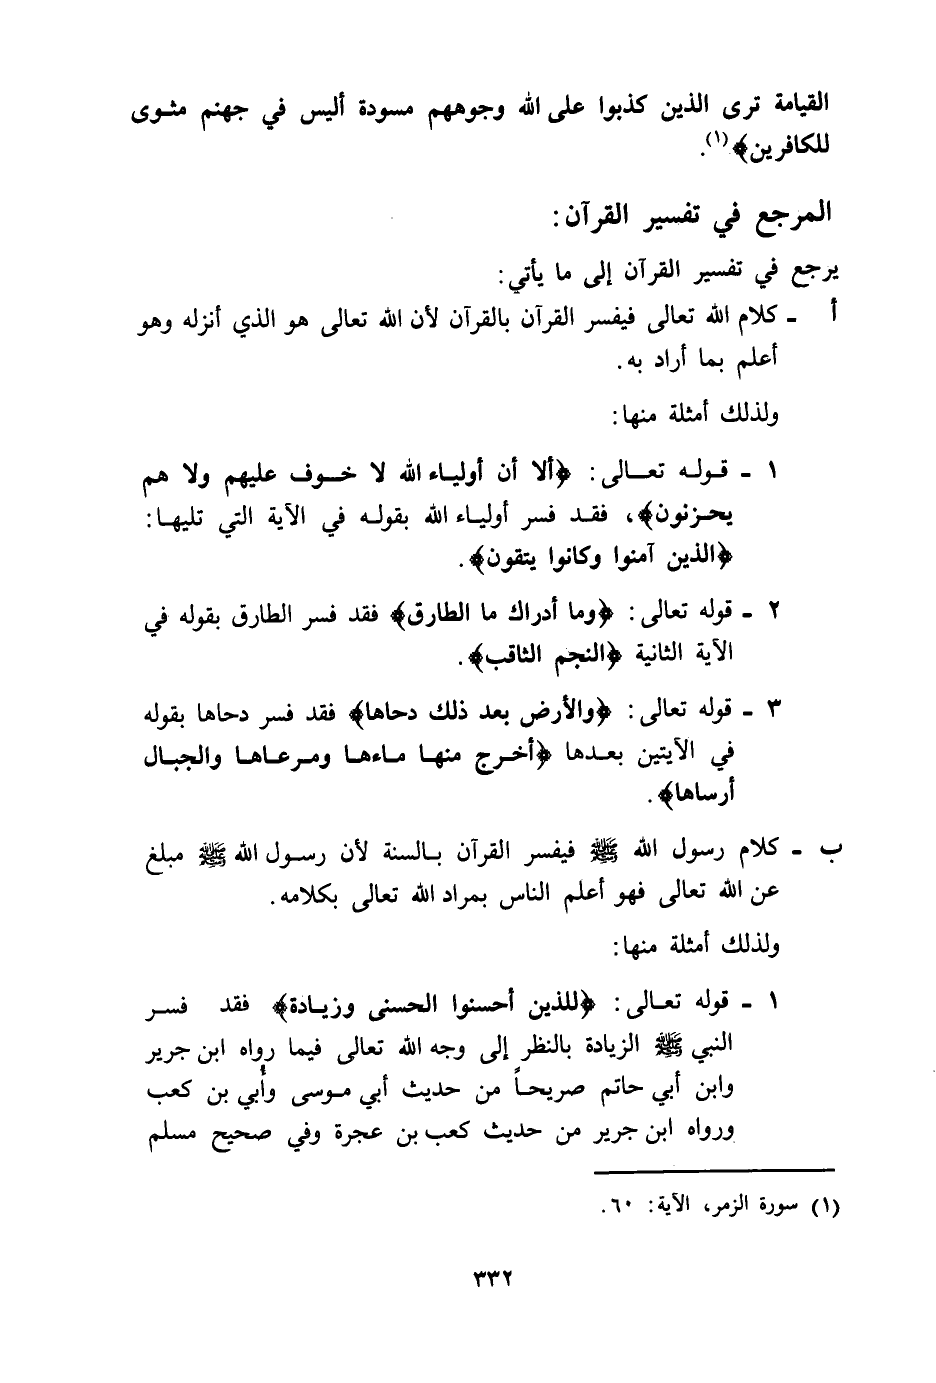 القيامة ترى الذين كذبوا على الله وجوههم مسودة أليس في جهنم مثوى
للكافرين﴾(١).
المرجع في تفسير القرآن:
يرجع في تفسير القرآن إلى ما يأتي:
أ ـ كلام الله تعالى فيفسر القرآن بالقرآن لأن الله تعالى هو الذي أنزله وهو
أعلم بما أراد به.
ولذلك أمثلة منها:
١ ـ قوله تعالى: ﴿ألا أن أولياء الله لا خوف عليهم ولا هم
يحزنون﴾، فقد فسر أولياء الله بقوله في الآية التي تليها:
﴿الذين آمنوا وكانوا يتقون﴾.
٢ ـ قوله تعالى: ﴿وما أدراك ما الطارق﴾ فقد فسر الطارق بقوله في
الآية الثانية ﴿النجم الثاقب﴾.
٣ ـ قوله تعالى: ﴿والأرض بعد ذلك دحاها﴾ فقد فسر دحاها بقوله
في الآيتين بعدها ﴿أخرج منها ماءها ومرعاها والجبال
أرساها﴾.
ب ـ كلام رسول الله ﷺ فيفسر القرآن بالسنة لأن رسول الله ﷺ مبلغ
عن الله تعالى فهو أعلم الناس بمراد الله تعالى بكلامه.
ولذلك أمثلة منها:
١ ـ قوله تعالى: ﴿للذين أحسنوا الحسنى وزيادة﴾ فقد فسر
النبي ﷺ الزيادة بالنظر إلى وجه الله تعالى فيما رواه ابن جرير
وابن أبي حاتم صريحاً من حديث أبي موسى وأُبي بن كعب
ورواه ابن جرير من حديث كعب بن عجرة وفي صحيح مسلم
(١) سورة الزمر، الآية: ٦٠.
٣٣٢